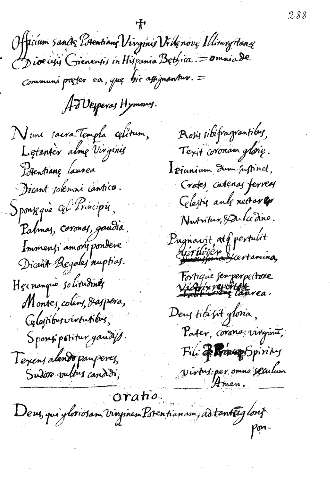 288
Officium sanctæ Potentianæ Virginis Villænovæ Illiturgitanæ
Diœcesis Gienensis in Hispania Bethica. = omnia de
communi præter ea, quæ hic assignantur. =
Ad Vesperas Hymnus.
Nunc sacra Templa cœlitum,
Lætanter almæ Virginis
Potentianæ laurea
Dicant solemni cantico.
Sponsæque cœli Principis,
Palmas, coronas, gaudia
Immensi amoris pondere
Dicant Regales nuptias.
Hæc namque solitudines
Montes, colles, & aspera,
Cælestibus virtutibus,
Sponsi potitur gaudiis.
Texens alendo pauperes,
Sudore vultus candidi,
Rosis sibi fragrantibus,
Texit coronam gloriæ.
Ieiunium dum sustinet,
Crates, catenas ferreas
Cælestis auls nectare
Nutritur, & dulcedine.
Pugnavit, atq pertulit
certamina,
Fortique semper pectore
laurea.
Deus tibi sit gloria,
Pater, corona virginum,
Fili Spiritus
virtus per omne sæculum
Amen.
Oratio
Deus, qui gloriosam Virginem Potentianam, ad tantæ gloriæ
pon-